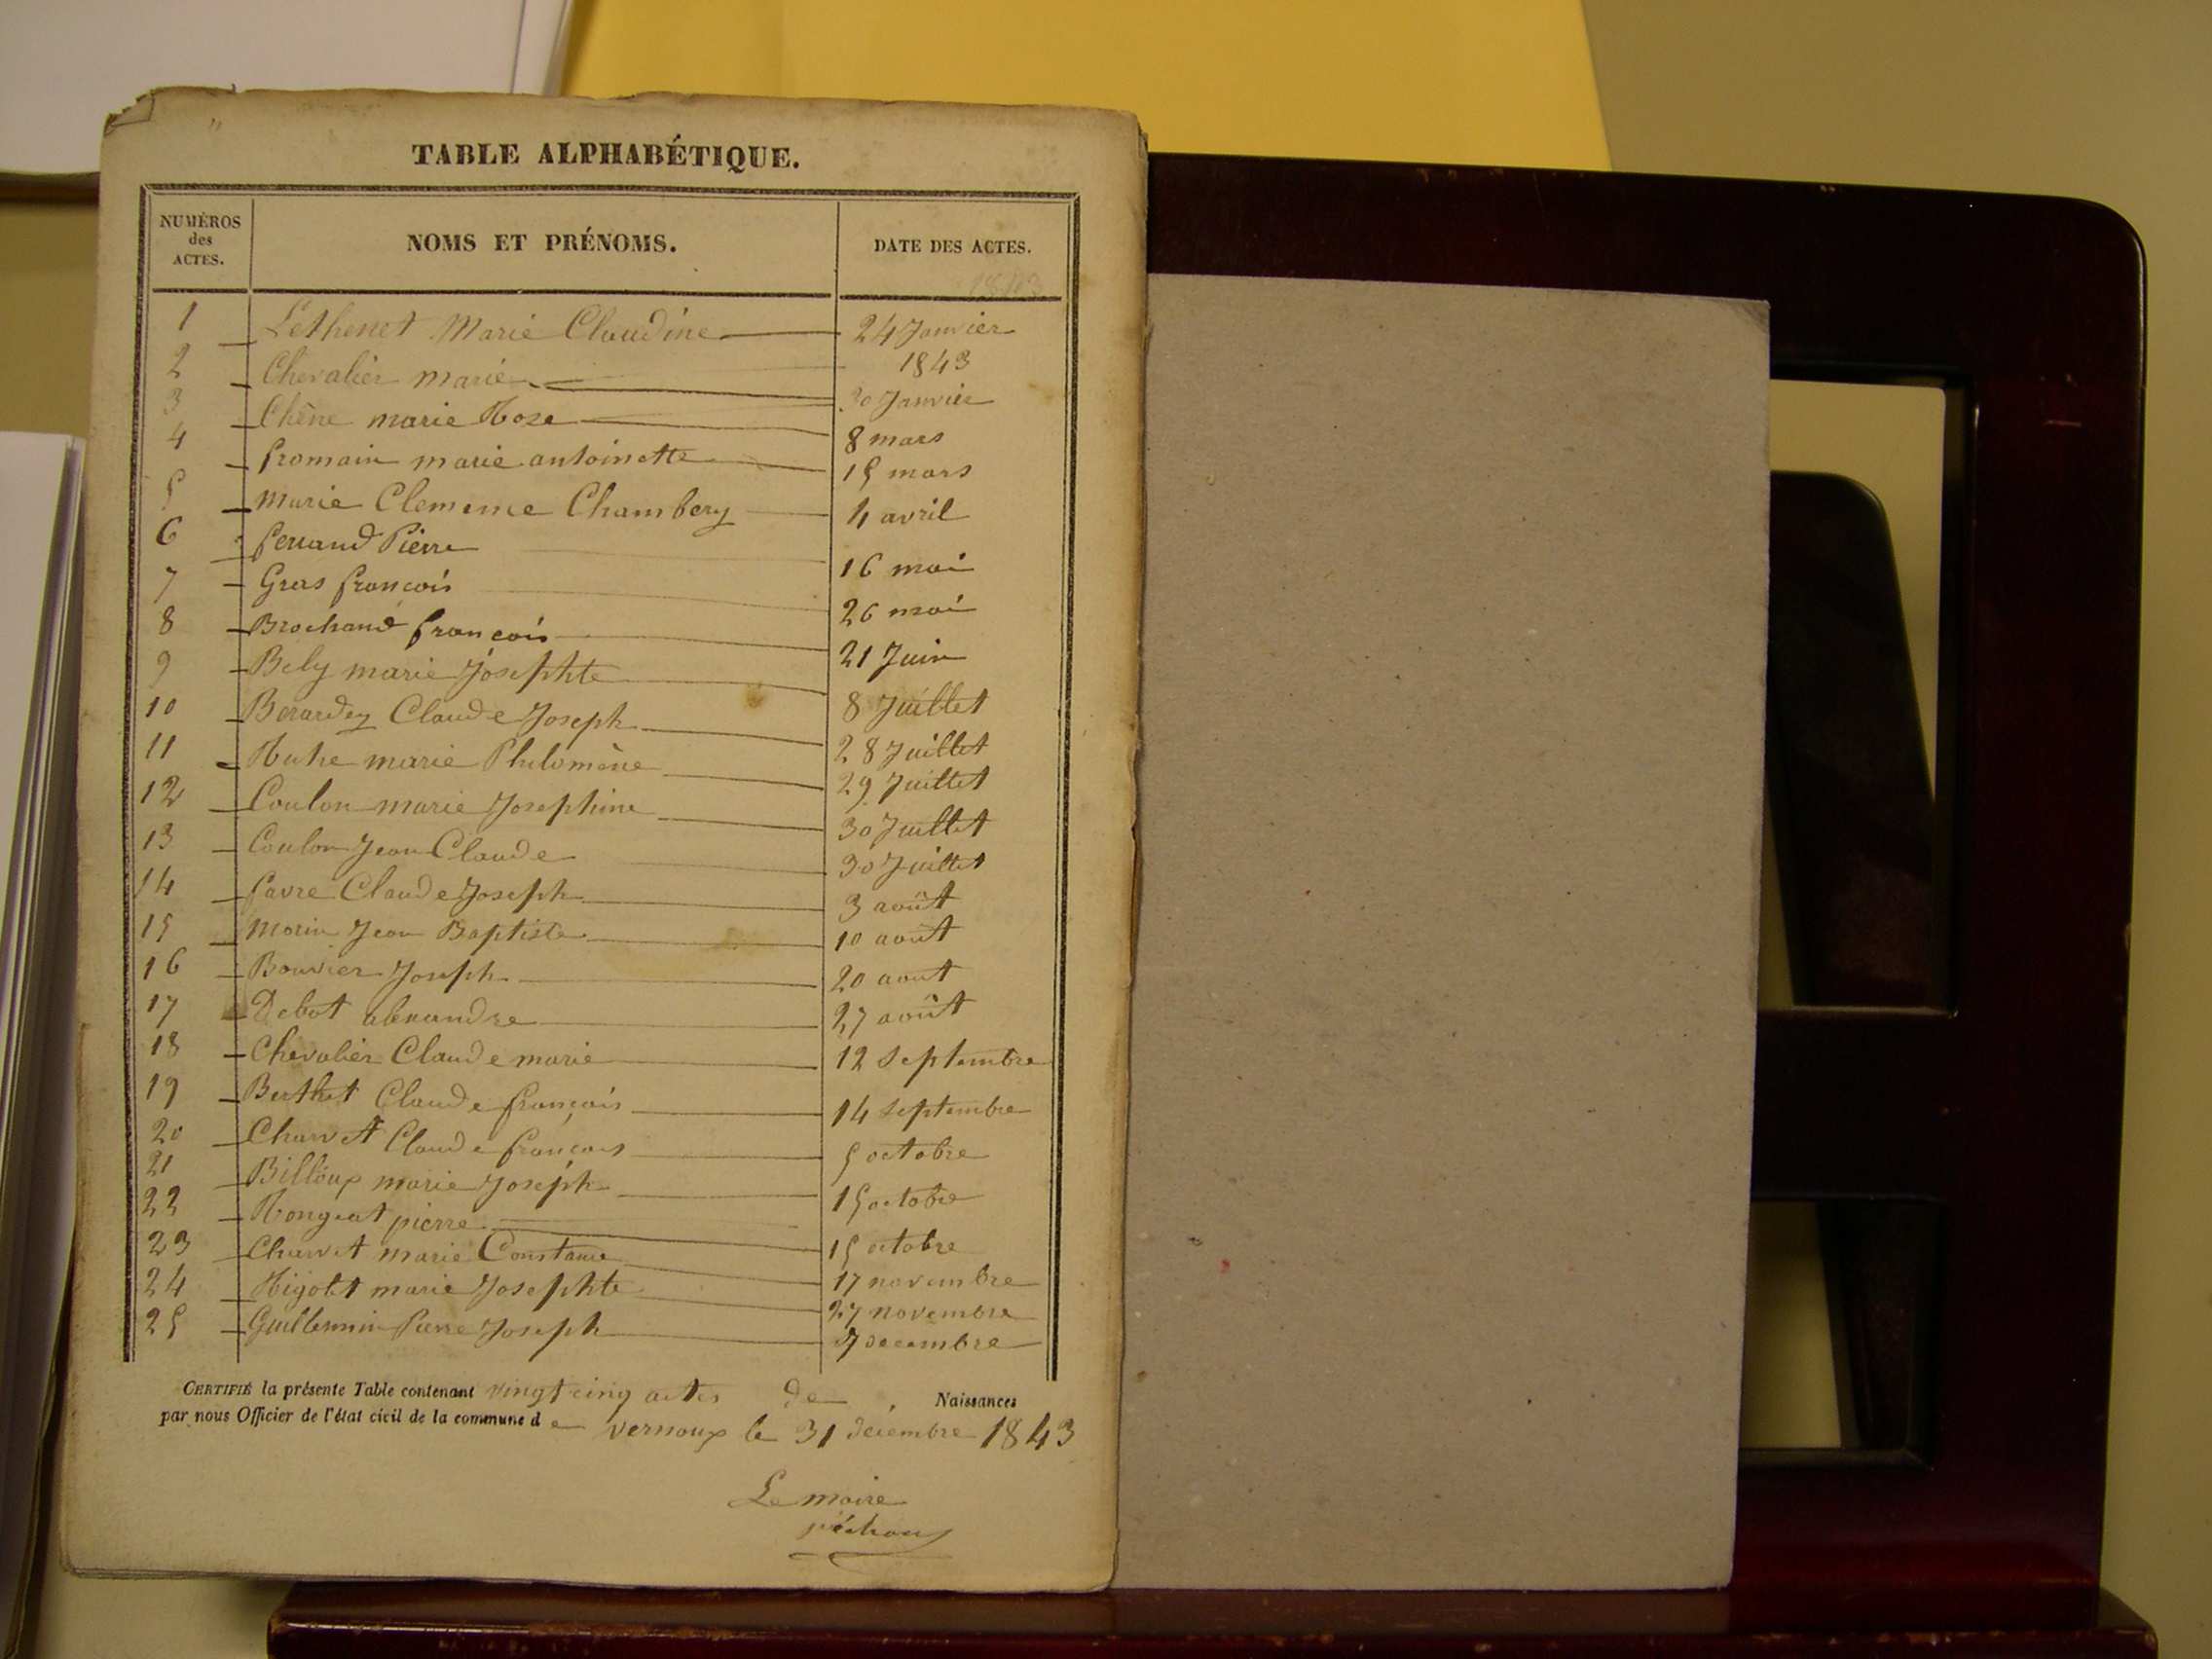 TABLE ALPHABÉTIQUE.
NUMÉROS des ACTES. NOMS ET PRÉNOMS. DATE DES ACTES.
1843
1 Lethenet Marie Claudine 24 Janvier 1843
2 Chevalier marie 30 Janvier
3 Chêne marie Rose 8 mars
4 fromain marie antoinette 15 mars
5 Marie Clemence Chambery 4 avril
6 ferrand Pierre 16 mai
7 Gras francois 26 mai
8 Brochand francois 21 Juin
9 Bely marie Josephte 8 Juillet
10 Berardey Claude Joseph 28 Juillet
11 marie Philomène 29 Juillet
12 Coulon marie Josephine 30 Juillet
13 Coulon Jean Claude 30 Juillet
14 favre Claude Joseph 3 août
15 Morin Jean Baptiste 10 août
16 Bouvier Joseph 20 aout
17 Debot alexandre 27 août
18 Chevalier Claude marie 12 Septembre
19 Berthet Claude françois 14 Septembre
20 Charvet Claude françois 5 octobre
21 Billoux marie Joseph 15 octobre
22 Rongeat pierre 15 octobre
23 Charvet marie Constance 17 novembre
24 Rigolet marie Josephte 27 novembre
25 Guillemin Pierre Joseph 7 decembre
CERTIFIÉ la présente Table contenant vingt cinq actes de Naissances
par nous Officier de l'état civil de la commune de vernoux le 31 décembre 1843
Le maire